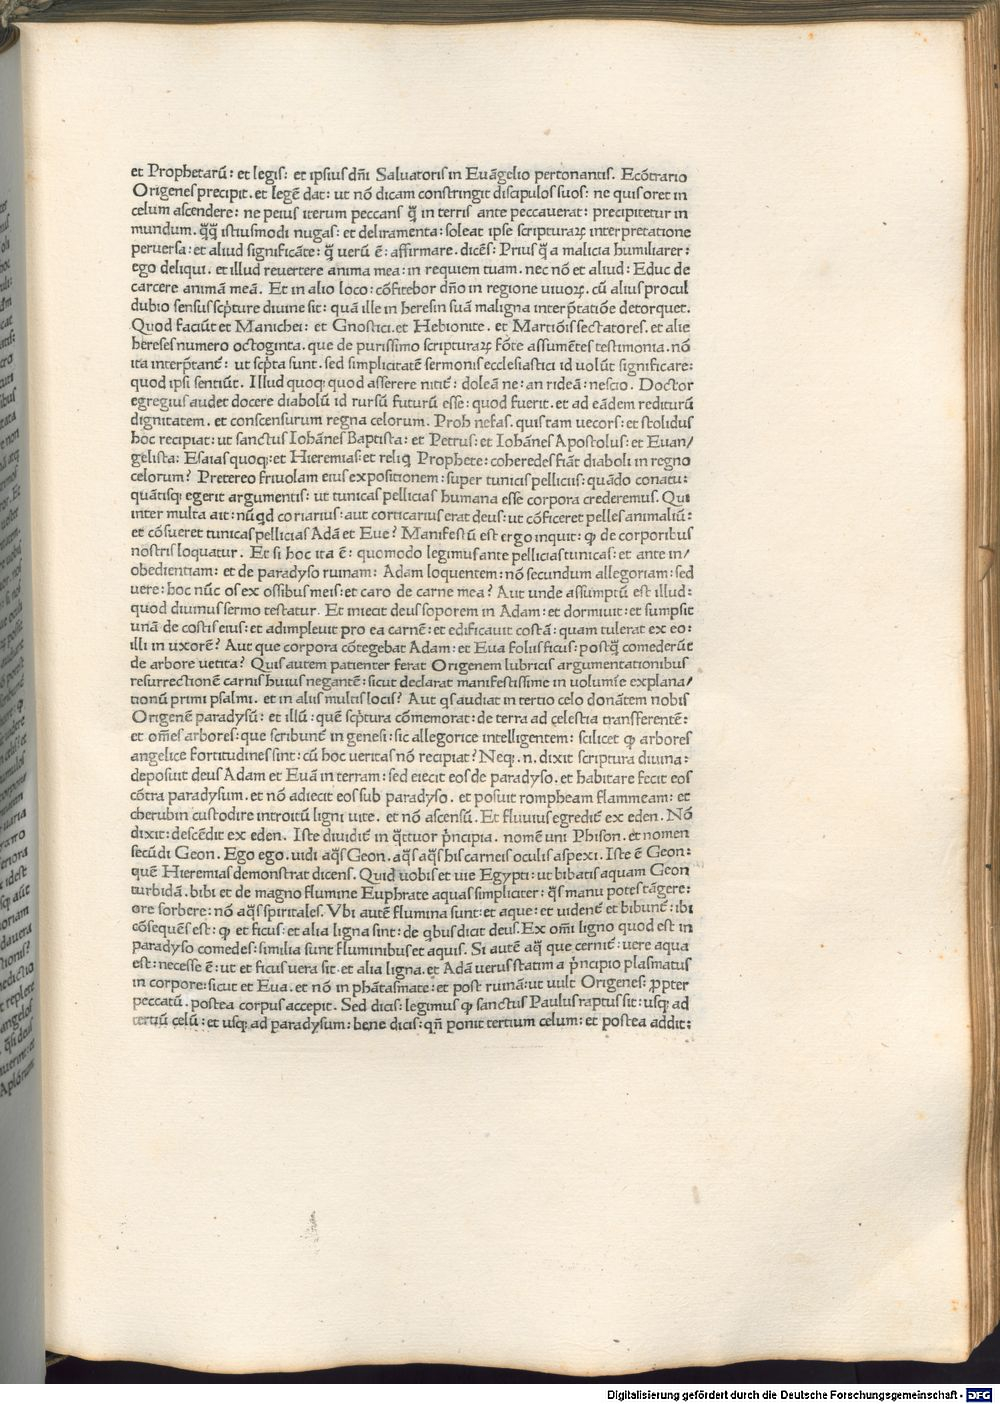 et Prophetarū: et legis: et ipsius dñi Saluatoris in Euāgelio pertonantis. Ecōtrario
Origenes precipit. et legē dat: ut nō dicam constringit discipulos suos: ne quis oret in
celum ascendere: ne peius iterum peccans q̄̃ in terris ante peccauerat: precipitetur in
mundum. q̄̃q̄̃ istiusmodi nugas: et deliramenta: soleat ipse scripturaꝝ interpretatione
peruersa: et aliud significāte: q̄̃ verū ē: affirmare. dicēs: Prius q̄̃ a malicia humiliarer:
ego deliqui. et illud reuertere anima mea: in requiem tuam. nec nō et aliud: Educ de
carcere animā meā. Et in alio loco: cōfitebor dño in regione uiuoꝝ. cū alius procul
dubio sensus scp̄ture diuine sit: quā ille in heresin suā maligna interp̄tatiōe detorquet.
Quod faciūt et Manichei: et Gnostici. et Hebionite. et Martiōis sectatores. et alie
hereses numero octoginta. que de purissimo scripturaꝝ fōte assumētes testimonia. nō
ita interp̄tant̄: ut scp̄ta sunt. sed simplicitatē sermonis ecclesiastici id uolūt significare:
quod ipsi sentiūt. Illud quoqꝫ quod asserere nitit̄: doleā ne: an rideā: nescio. Doctor
egregius audet docere diabolū id rursū futurū esse: quod fuerit. et ad eādem rediturū
dignitatem. et conscensurum regna celorum. Proh nefas. quis tam uecors: et stolidus
hoc recipiat: ut sanctus Iohānes Baptista: et Petrus: et Iohānes Apostolus: et Euan/
gelista: Esaias quoqꝫ: et Hieremias: et reliq̄ Prophete: coheredes fiāt diaboli in regno
celorum? Pretereo friuolam eius expositionem: super tunicis pelliciis: quādo conatu:
quātisqꝫ egerit argumentis: ut tunicas pellicias humana esse corpora crederemus. Qui
inter multa ait: nūqd coriarius: aut corticarius erat deus: ut cōficeret pelles animaliū:
et cōsueret tunicas pellicias Adā et Eue? Manifestū est ergo inquit: ꝙ de corporibus
nostris loquatur. Et si hoc ita ē: quomodo legimus ante pellicias tunicas: et ante in/
obedientiam: et de paradyso ruinam: Adam loquentem: nō secundum allegoriam: sed
uere: hoc nūc os ex ossibus meis: et caro de carne mea? Aut unde assumptū est illud:
quod diuinus sermo testatur. Et iniecit deus soporem in Adam: et dormiuit: et sumpsit
unā de costis eius: et adimpleuit pro ea carnē: et edificauit costā: quam tulerat ex eo:
illi in uxorē? Aut que corpora cōtegebat Adam: et Eua foliis ficus: postq̄̃ comederūt
de arbore uetita? Quis autem patienter ferat Origenem lubricis argumentationibus
resurrectionē carnis huius negantē: sicut declarat manifestissime in uolumīe explana/
tionū primi psalmi. et in aliis multis locis? Aut qs audiat in tertio celo donātem nobis
Origenē paradysū: et illū: quē scp̄tura cōmemorat: de terra ad celestia transferentē:
et om̄es arbores: que scribunt̄ in genesi: sic allegorice intelligentem: scilicet ꝙ arbores
angelice fortitudines sint: cū hoc ueritas nō recipiat? Neqꝫ. n. dixit scriptura diuina:
deposuit deus Adam et Euā in terram: sed eiecit eos de paradyso. et habitare fecit eos
cōtra paradysum. et nō adiecit eos sub paradyso. et posuit rompheam flammeam: et
cherubin custodire introitū ligni uite. et nō ascensū. Et fluuius egredit̄ ex eden. Nō
dixit: descēdit ex eden. Iste diuidit̄ in q̄ttuor p̄ncipia. nomē uni Phison. et nomen
secūdi Geon. Ego ego. uidi aq̄s Geon. aq̄s aq̄s his carneis oculis aspexi. Iste ē Geon:
quē Hieremias demonstrat dicens. Quid uobis et uie Egypti: ut bibatis aquam Geon
turbidā. bibi et de magno flumine Euphrate aquas simpliciter: q̄s manu potes tāgere:
ore sorbere: nō aq̄s spiritales. Vbi autē flumina sunt: et aque: et uident̄ et bibunt̄: ibi
cōsequēs est: ꝙ et ficus: et alia ligna sint: de qbus dicit deus. Ex om̄i ligno quod est in
paradyso comedes: similia sunt fluminibus et aquis. Si autē aq̄̃ que cernit̄: uere aqua
est: necesse ē: ut et ficus uera sit. et alia ligna. et Adā uerus statim a p̄ncipio plasmatus
in corpore: sicut et Eua. et nō in phātasmate: et post ruinā: ut uult Origenes: ꝓpter
peccatū. postea corpus accepit. Sed dicis: legimus ꝙ sanctus Paulus raptus sit: usqꝫ ad
tertiū celū: et usqꝫ ad paradysum: bene dicis: qñ ponit tertium celum: et postea addit:
Digitalisierung gefördert durch die Deutsche Forschungsgemeinschaft - DFG